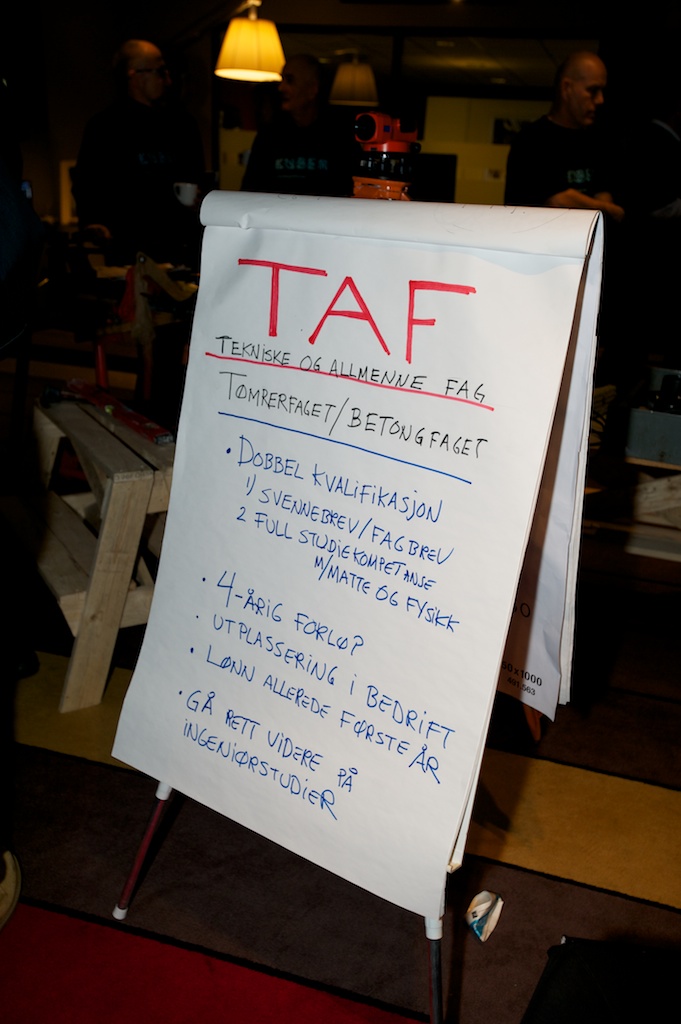 TAF
TEKNISKE OG ALLMENNE FAG
TØMRERFAGET/BETONGFAGET
• DOBBEL KVALIFIKASJON
1) SVENNEBREV/FAGBREV
2 FULL STUDIEKOMPETANSE
M/MATTE OG FYSIKK
• 4-ÅRIG FORLØP
• UTPLASSERING I BEDRIFT
• LØNN ALLEREDE FØRSTE ÅR
• GÅ RETT VIDERE PÅ
INGENIØRSTUDIER